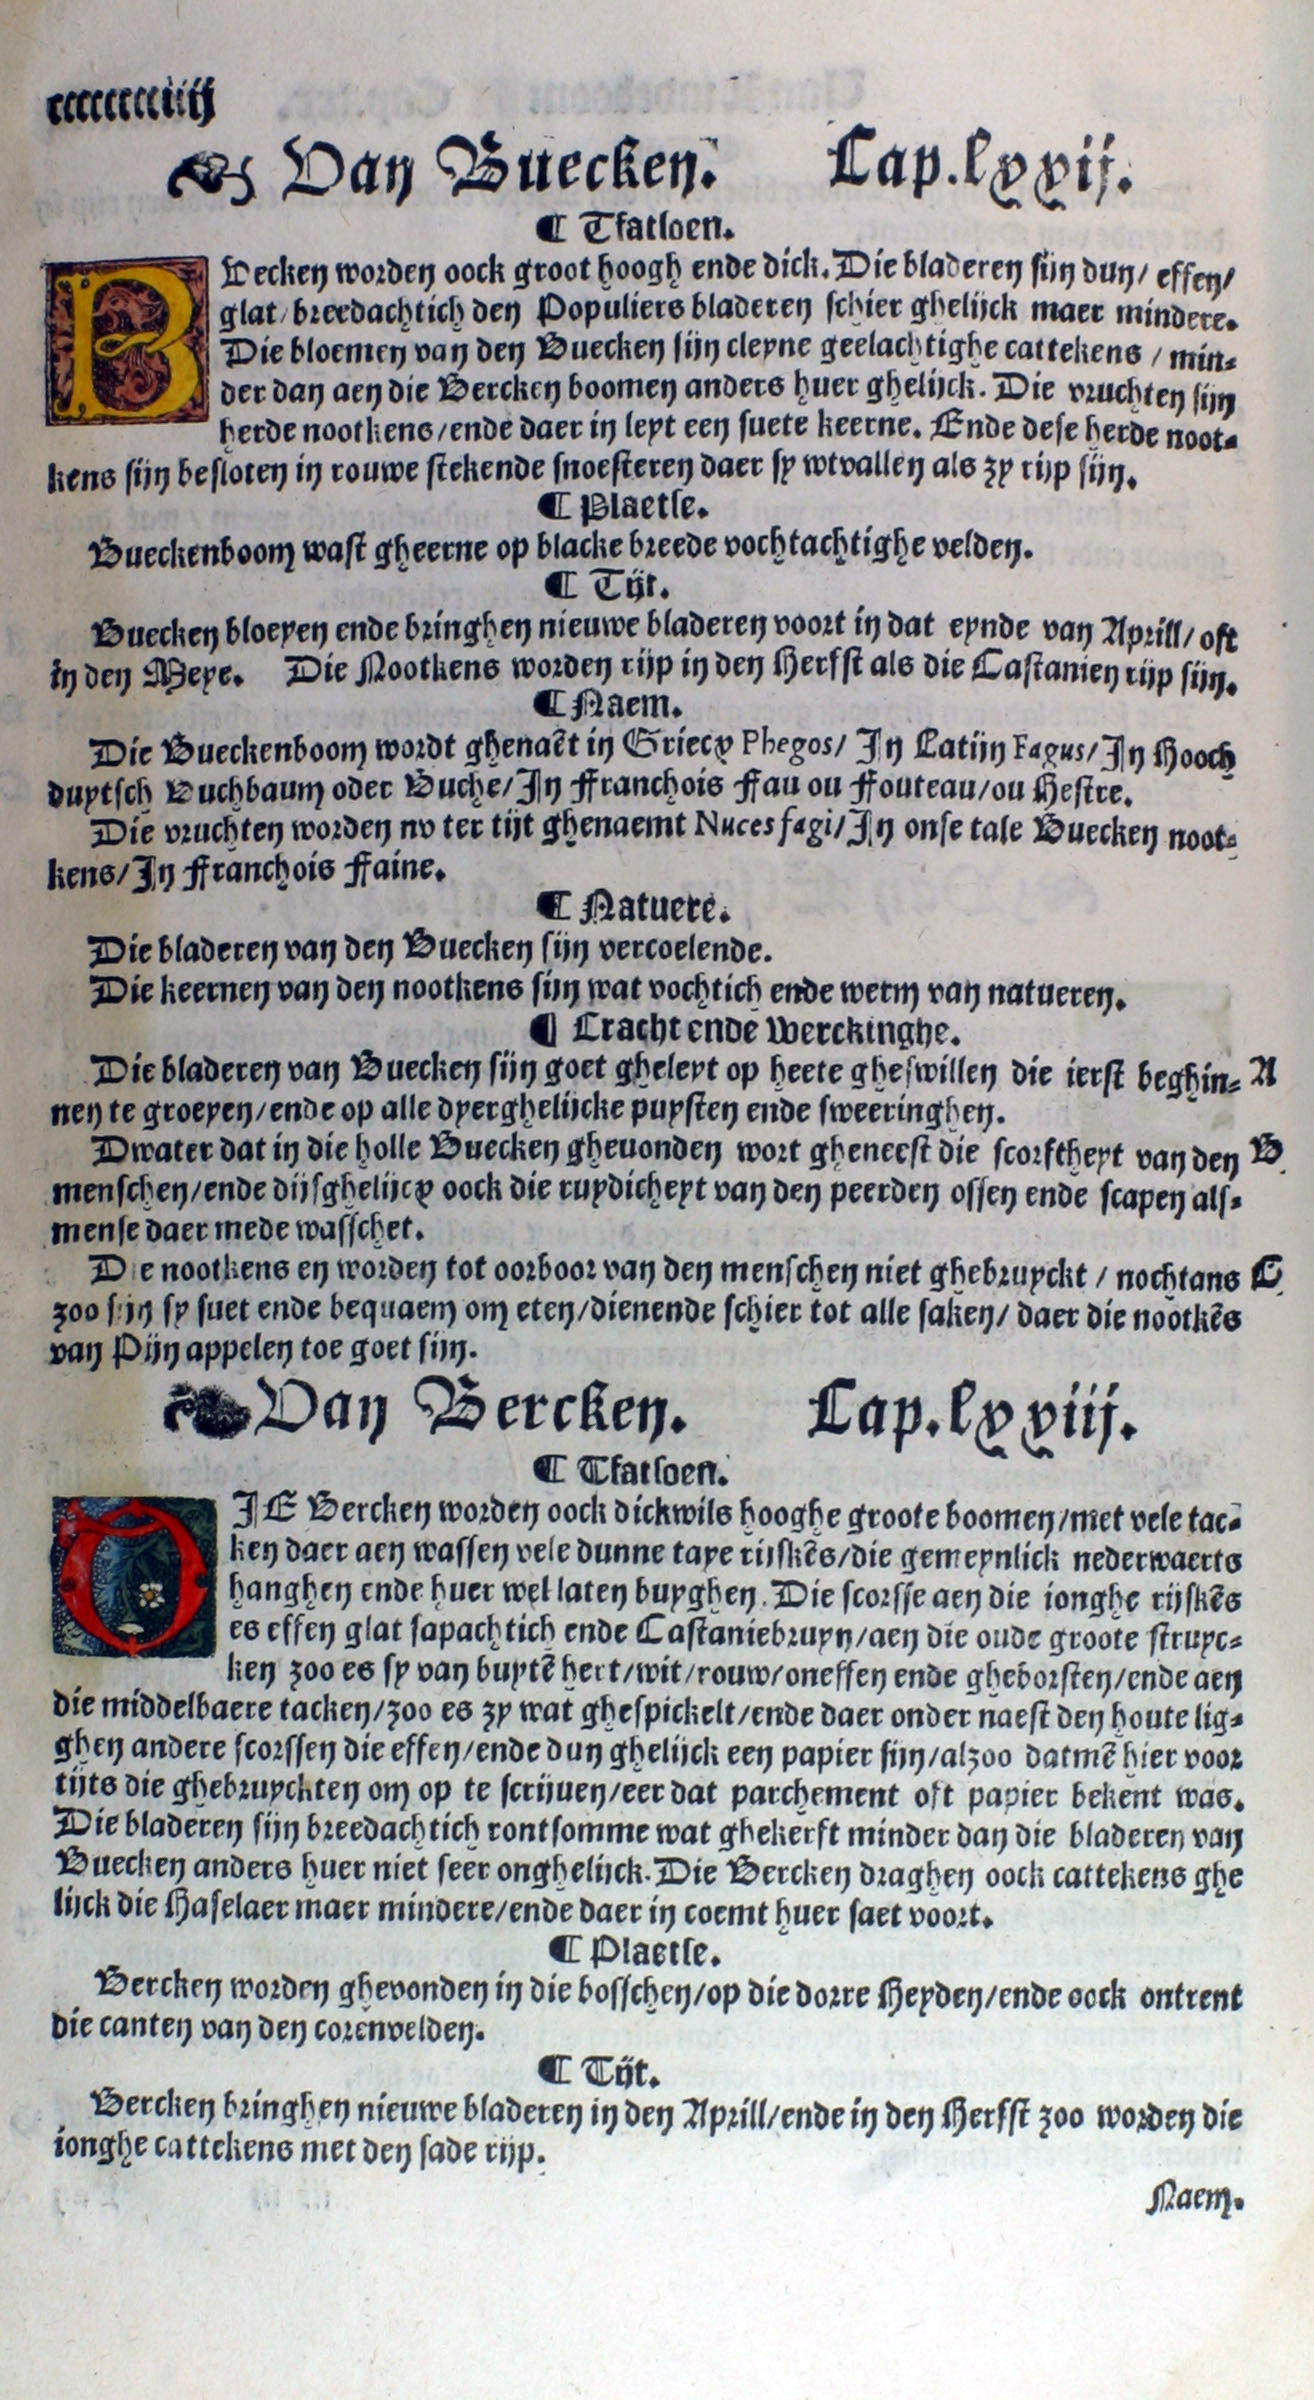 ccccccccciiij
Van Buecken. Cap.lxxij.
¶ Tfatsoen.
BVecken worden oock groot hoogh ende dick. Die bladeren sijn dun/ effen/
glat/ breedachtich den Populiers bladeren schier ghelijck maer mindere.
Die bloemen van den Buecken sijn cleyne geelachtighe cattekens / min-
der dan aen die Bercken boomen anders huer ghelijck. Die vruchten sijn
herde nootkens/ende daer in leyt een suete keerne. Ende dese herde noot-
kens sijn besloten in rouwe stekende snoesteren daer sy wtvallen als zy rijp sijn.
¶ Plaetse.
Bueckenboom wast gheerne op blacke breede vochtachtighe velden.
¶ Tijt.
Buecken bloeyen ende bringhen nieuwe bladeren voort in dat eynde van Aprill/ oft
in den Meye. Die Nootkens worden rijp in den Herfst als die Castanien rijp sijn.
¶ Naem.
Die Bueckenboom wordt ghenaẽt in Griecx Phegos/ In Latijn Fagus/ In Hooch
duytsch Buchbaum oder Buche/In Franchois Fau ou Fouteau/ou Hestre.
Die vruchten worden nv ter tijt ghenaemt Nuces fagi/In onse tale Buecken noot-
kens/In Franchois Faine.
¶ Natuere.
Die bladeren van den Buecken sijn vercoelende.
Die keernen van den nootkens sijn wat vochtich ende werm van natueren.
¶ Cracht ende Werckinghe.
Die bladeren van Buecken sijn goet gheleyt op heete gheswillen die ierst beghin- A
nen te groeyen/ende op alle dyerghelijcke puysten ende sweeringhen.
Dwater dat in die holle Buecken gheuonden wort gheneest die scorftheyt van den B
menschen/ende dijsghelijcx oock die ruydicheyt van den peerden ossen ende scapen als-
mense daer mede wasschet.
Die nootkens en worden tot oorboor van den menschen niet ghebruyckt / nochtans C
zoo sijn sy suet ende bequaem om eten/dienende schier tot alle saken/ daer die nootkẽs
van Pijn appelen toe goet sijn.
Van Bercken. Cap.lxxiij.
¶ Tfatsoen.
DIE Bercken worden oock dickwils hooghe groote boomen/met vele tac-
ken daer aen wassen vele dunne taye rijskẽs/die gemeynlick nederwaerts
hanghen ende huer wel laten buyghen. Die scorsse aen die ionghe rijskẽs
es effen glat sapachtich ende Castaniebruyn/aen die oude groote struyc-
ken zoo es sy van buytẽ hert/wit/rouw/oneffen ende gheborsten/ende aen
die middelbaere tacken/zoo es zy wat ghespickelt/ende daer onder naest den houte lig-
ghen andere scorssen die effen/ende dun ghelijck een papier sijn/alzoo datmẽ hier voor
tijts die ghebruyckten om op te scrijuen/eer dat parchement oft papier bekent was.
Die bladeren sijn breedachtich rontsomme wat ghekerft minder dan die bladeren van
Buecken anders huer niet seer onghelijck. Die Bercken draghen oock cattekens ghe
lijck die Haselaer maer mindere/ende daer in coemt huer saet voort.
¶ Plaetse.
Bercken worden ghevonden in die bosschen/op die dorre Heyden/ende oock ontrent
die canten van den corenvelden.
¶ Tijt.
Bercken bringhen nieuwe bladeren in den Aprill/ende in den Herfst zoo worden die
ionghe cattekens met den sade rijp.
Naem.